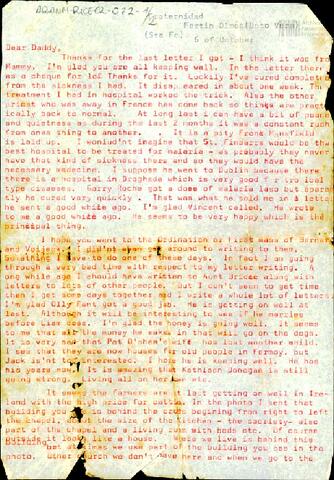 Fraternidad
Fortin Olmos(Dpto Vera)
(Sta Fe). 5 of October
Dear Daddy,
Thanks for the last letter I got - I think it was from
Mammy. I'm glad you are all keeping well. In the letter there
was a cheque for Thanks for it. Luckily I've cured completely
from the sickness I had. It disapeared in about one week. The
treatment I had in hospital worked the trick. Also the other
priest who was away in france has come back so things are pract-
ically back to normal. At long last I can have a bit of peace
and quietness as during the last 2 months it was a constant rush
from one thing to another. It is a pity Frank Mansfield
is laid up. I wouldnt imagine that St. Finbarrs would be the
best hospital to be treated for malaria - as probably they never
have that kind of sickness there and so they would have the
necessary I suppose he went to Dublin because there
there is a hospital in Drogheda which is very good for tropical
type diseases. Garry Roche got a dose of malaria also but appare-
ntly he cured very quickly. That was what he told me in a letter
he sent a good while ago. I'm glad Vincent called. He wrote
to me a good while ago. He seems to be very happy which is the
principal thing.
I hope you went to the Ordination or first mass of
I did'nt get around to writing to them,
something I have to do one of these days. In fact I am going
through a very bad time with respect to my letter writing. A
long while ago I should have written to
letters to lots of other people. but I can't seem to get time
then I get some days together and I write a whole lot of letters
I'm glad Olly Fant got a good job. He is getting on well at
last. Although it will be interesting to see if he marries
before Liam does. I'm glad the honey is going well. It seems
to me that all the money he makes in that will go on the dogs.
It is very that Pat O'shea's wife has lost another child.
I see that they are now houses for old people in Fermoy. but
Jack is not interested. I hope he is keeping well. He has
his years now. It is amazing that Kathleen Donegan is still
going strong. Living all on her
It seems the farmers are at last getting on well in Ire-
land with the high price for cattle. In the photo I sent that
building you see to behind the begining from right to left
the chapel, about the size of the kitchen - the sacristy- also
part of the chapel and a living room with beds etc. Of course
outside it looks like a house. Where we live is behind this
building but at times we use part of the building you see in the
photo. Other church we don't have here and when we go to the